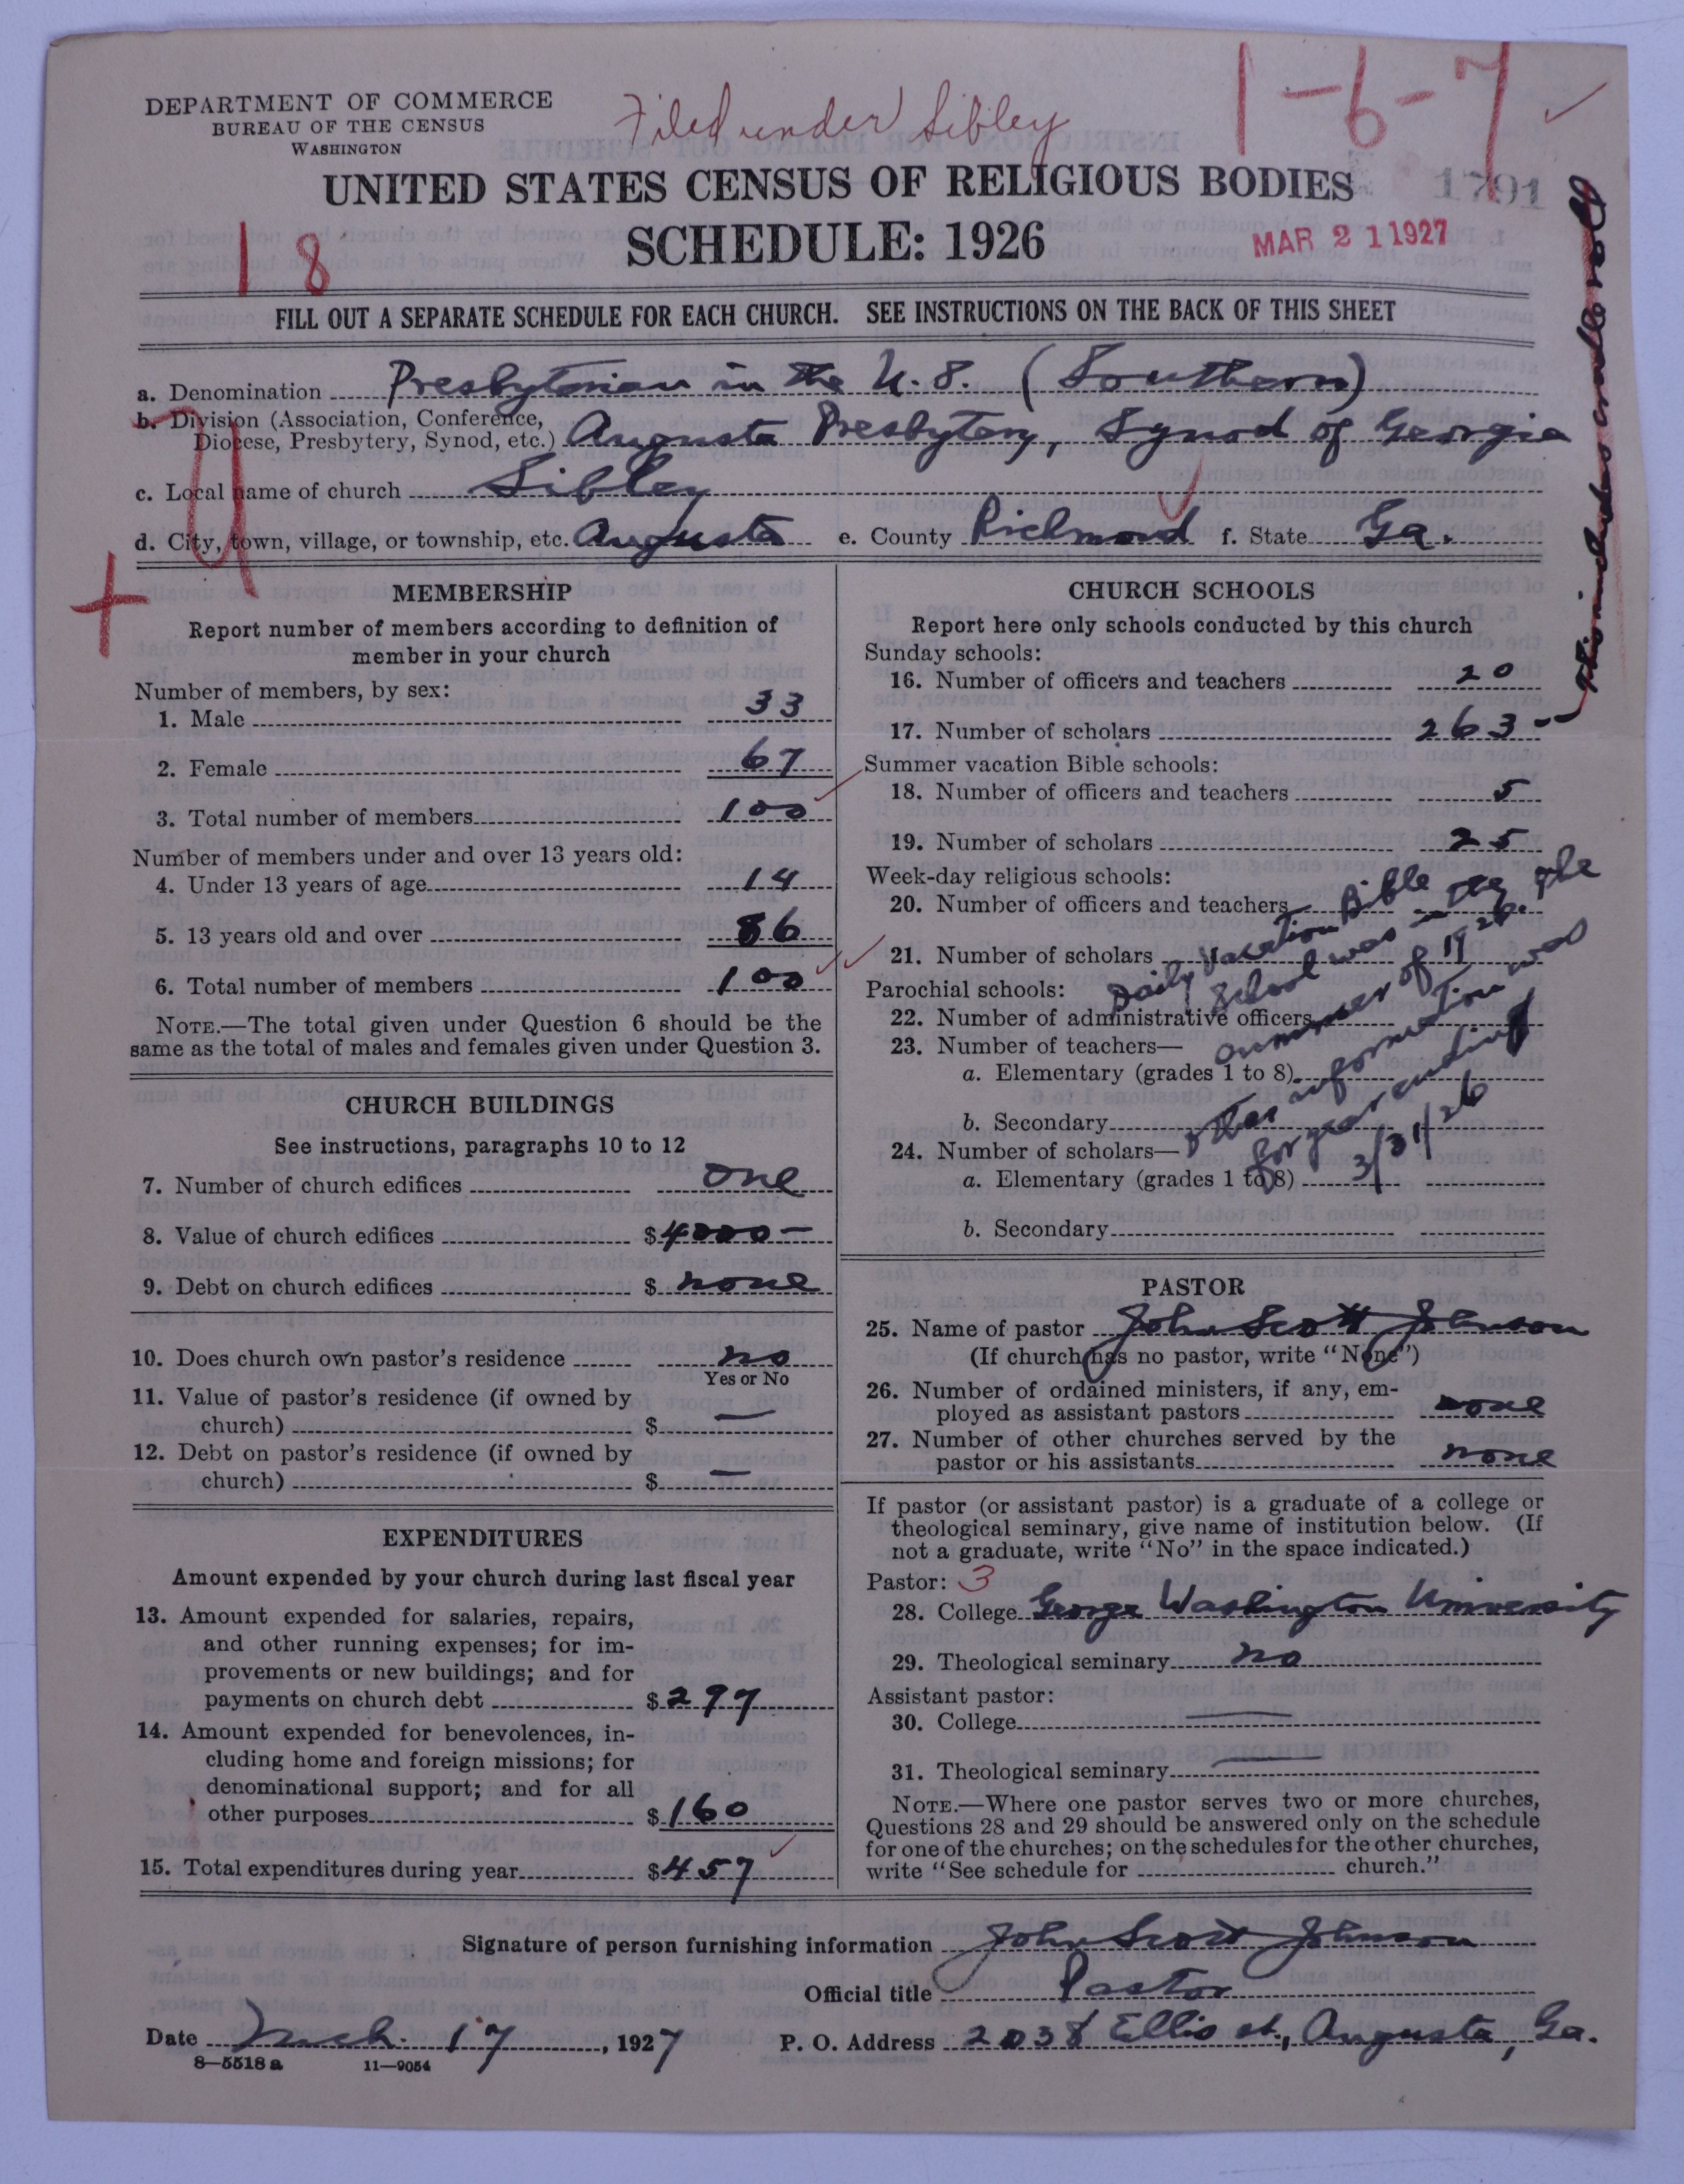 DEPARTMENT OF COMMERCE
BUREAU OF THE CENSUS
WASHINGTON
Filed under Sibley
1-6-7
UNITED STATES CENSUS OF RELIGIOUS BODIES
1791
SCHEDULE: 1926
MAR 21 1927
18
FILL OUT A SEPARATE SCHEDULE FOR EACH CHURCH. SEE INSTRUCTIONS ON THE BACK OF THIS SHEET
a. Denomination Presbyterian in the U.S. (Southern)
b. Division (Association, Conference,
Diocese, Presbytery, Synod, etc.) Augusta Presbytery, Synod of Georgia
c. Local name of church Sibley
d. City, town, village, or township, etc. Augusta e. County Richmond f. State Ga.
This includes cradle roll
MEMBERSHIP
Report number of members according to definition of
member in your church
Number of members, by sex:
1. Male 33
2. Female 67
3. Total number of members 100
Number of members under and over 13 years old:
4. Under 13 years of age 14
5. 13 years old and over 86
6. Total number of members 100
NOTE.—The total given under Question 6 should be the
same as the total of males and females given under Question 3.
CHURCH BUILDINGS
See instructions, paragraphs 10 to 12
7. Number of church edifices one
8. Value of church edifices $4000—
9. Debt on church edifices $ none
10. Does church own pastor's residence no
Yes or No
11. Value of pastor's residence (if owned by
church) $ —
12. Debt on pastor's residence (if owned by
church) $ —
EXPENDITURES
Amount expended by your church during last fiscal year
13. Amount expended for salaries, repairs,
and other running expenses; for im-
provements or new buildings; and for
payments on church debt $297
14. Amount expended for benevolences, in-
cluding home and foreign missions; for
denominational support; and for all
other purposes $160
15. Total expenditures during year $457
CHURCH SCHOOLS
Report here only schools conducted by this church
Sunday schools:
16. Number of officers and teachers 20
17. Number of scholars 263
Summer vacation Bible schools:
18. Number of officers and teachers 5
19. Number of scholars 25
Week-day religious schools:
20. Number of officers and teachers
21. Number of scholars
Parochial schools:
22. Number of administrative officers
23. Number of teachers—
a. Elementary (grades 1 to 8)
b. Secondary
24. Number of scholars—
a. Elementary (grades 1 to 8)
b. Secondary
Daily Vacation Bible
School was in the
summer of 1926. The
other information was
for year ending
3/31/26
PASTOR
25. Name of pastor John Scott Johnson
(If church has no pastor, write "None")
26. Number of ordained ministers, if any, em-
ployed as assistant pastors none
27. Number of other churches served by the
pastor or his assistants none
If pastor (or assistant pastor) is a graduate of a college or
theological seminary, give name of institution below. (If
not a graduate, write "No" in the space indicated.)
Pastor: 3
28. College George Washington University
29. Theological seminary no
Assistant pastor:
30. College —
31. Theological seminary —
NOTE.—Where one pastor serves two or more churches,
Questions 28 and 29 should be answered only on the schedule
for one of the churches; on the schedules for the other churches,
write "See schedule for church."
Signature of person furnishing information John Scott Johnson
Official title Pastor
Date Mch. 17, 1927 P. O. Address 2038 Ellis st., Augusta, Ga.
8—5518a 11—9054